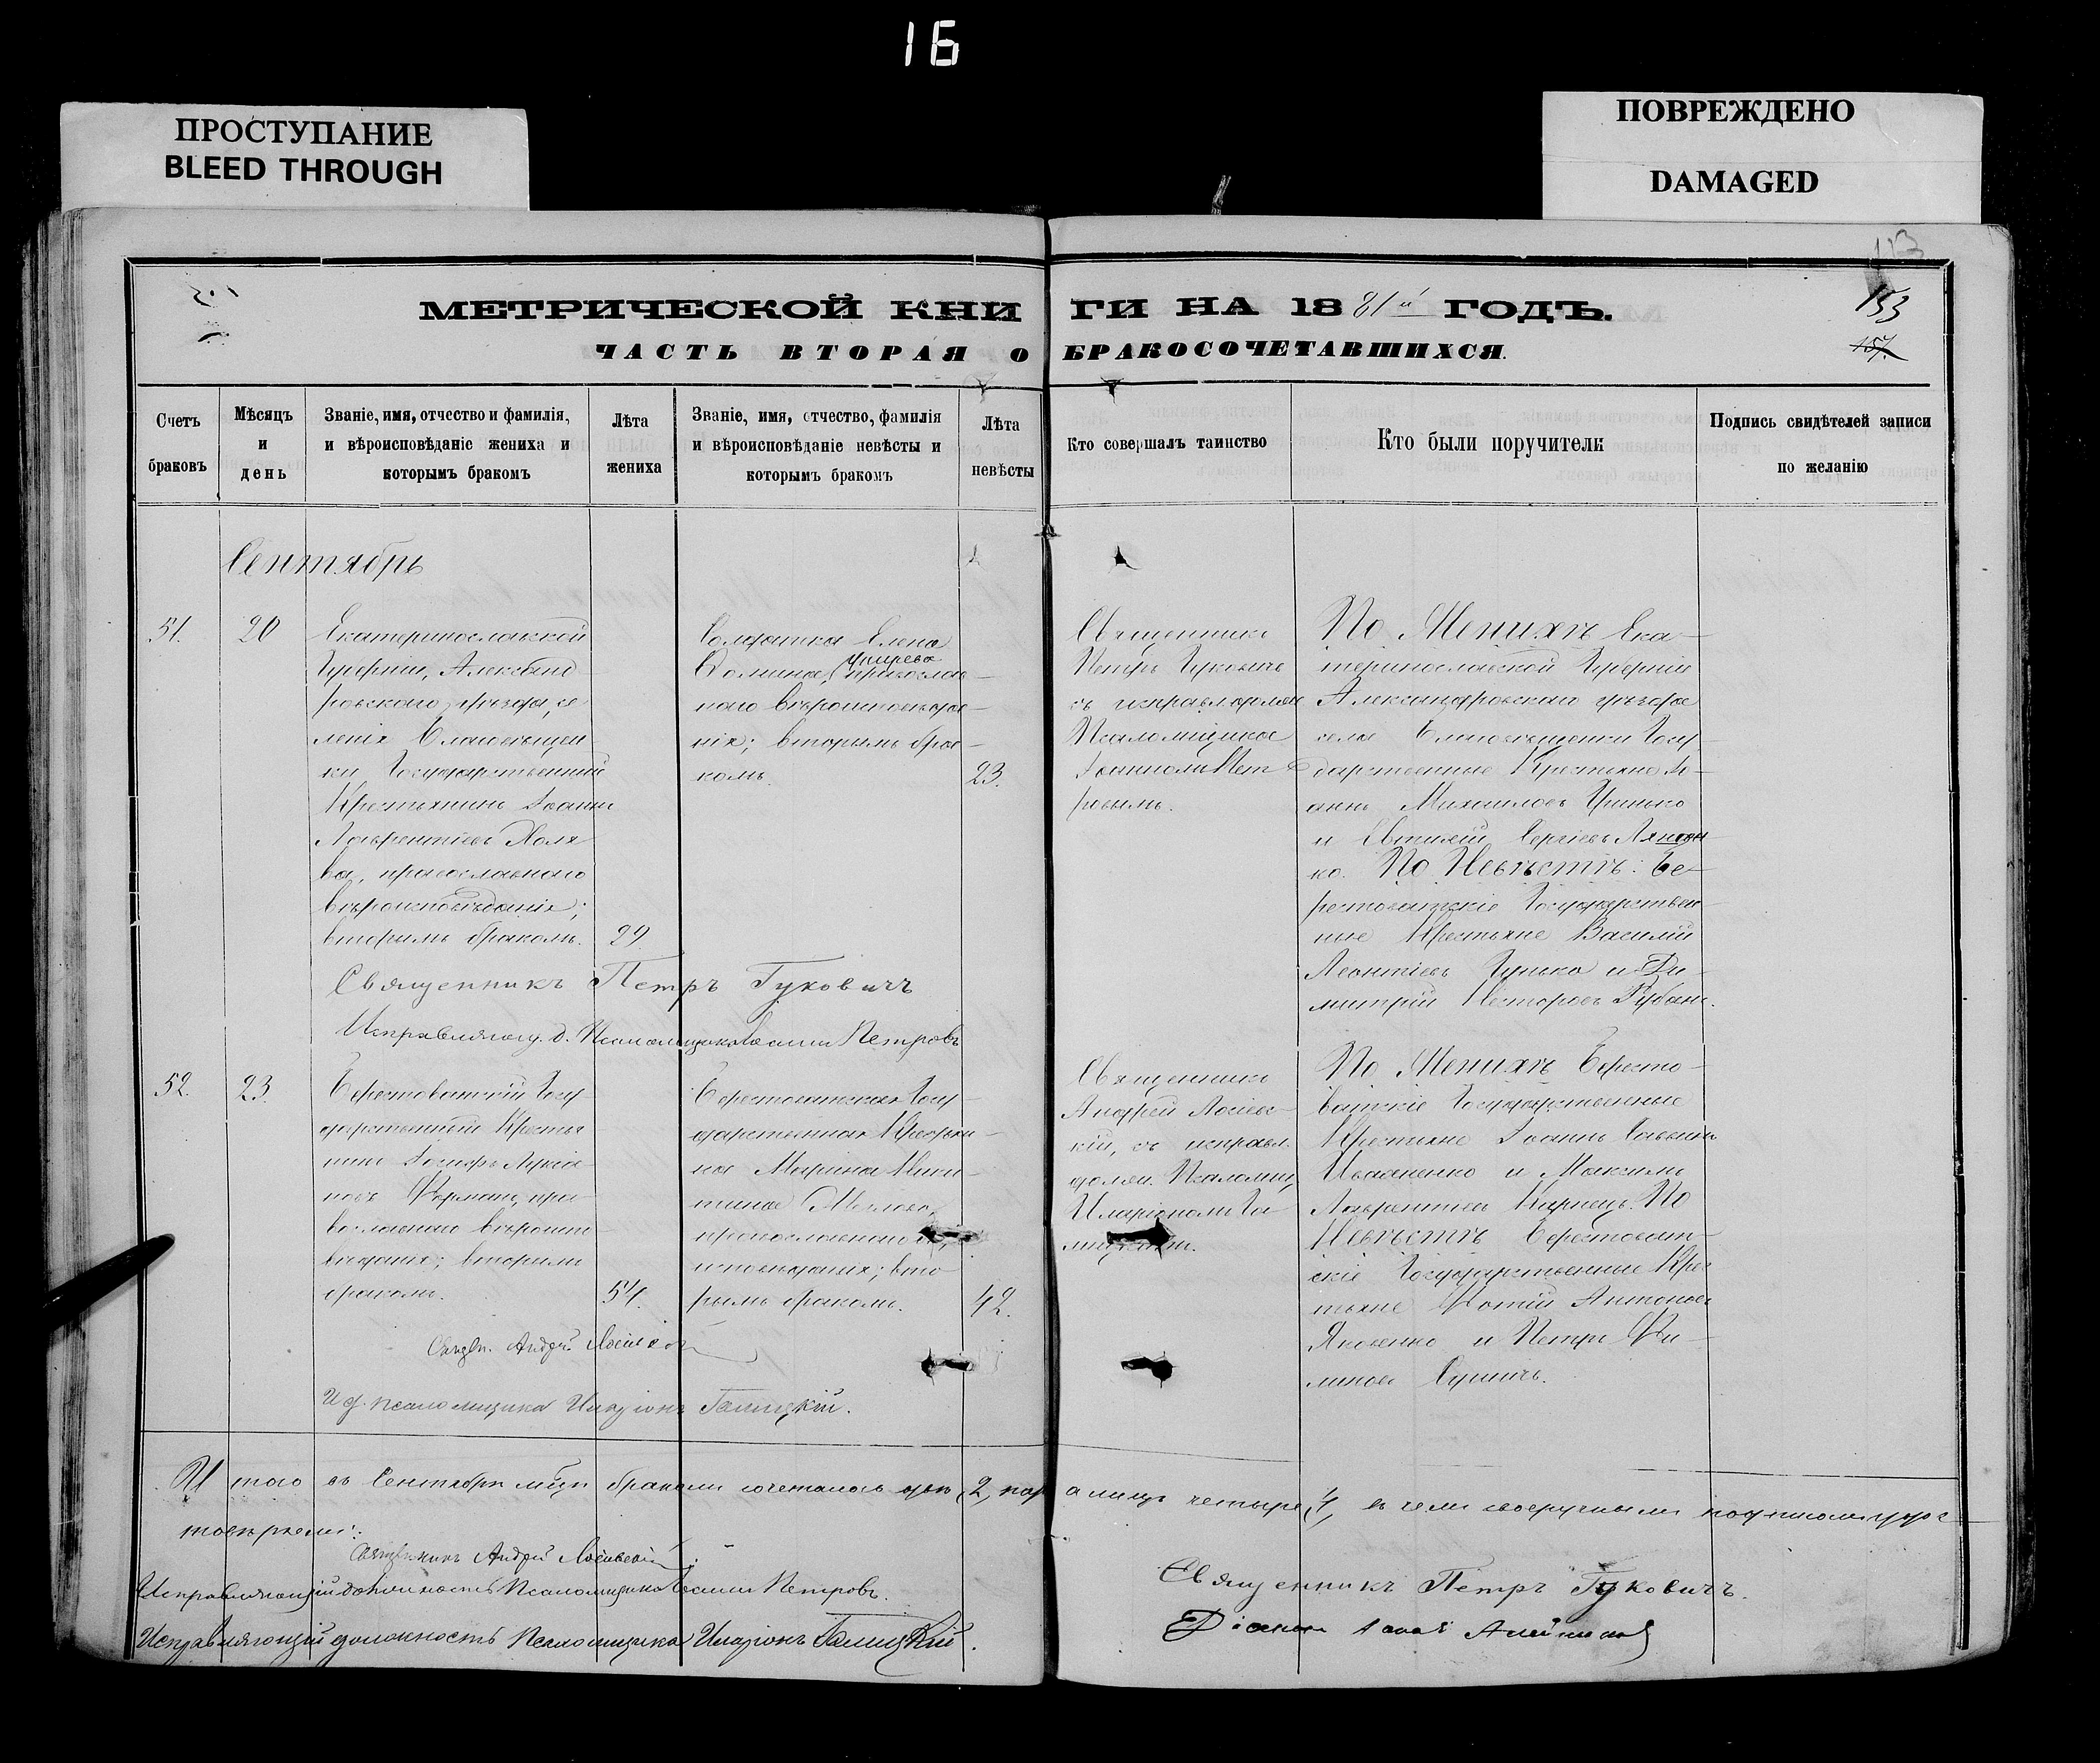 16
ПРОСТУПАНИЕ
BLEED THROUGH
ПОВРЕЖДЕНО
DAMAGED
113
МЕТРИЧЕСКОЙ КНИГИ НА 1881й ГОДЪ.
153
157.
ЧАСТЬ ВТОРАЯ О БРАКОСОЧЕТАВШИХСЯ.
Счетъ браковъ
Мѣсяцъ и день
Званіе, имя, отчество и фамилія, и вѣроисповѣданіе жениха и которымъ бракомъ
Лѣта жениха
Званіе, имя, отчество, фамилія и вѣроисповѣданіе невѣсты и которымъ бракомъ
Лѣта невѣсты
Кто совершалъ таинство
Кто были поручители
Подпись свидѣтелей записи по желанію
Сентябрь
51.
20
Екатеринославской
Губерніи, Александ
ровскаго уѣзда, се
ленія Благовѣщен
ки Государственный
Крестьянинъ Іоаннъ
Лаврентіевъ Холя
ва, православнаго
вѣроисповѣданія;
вторымъ бракомъ.
29.
Солдатка Елена
Фомина, православ
наго вѣроисповѣда
нія; вторымъ бра
комъ.
23.
Священникъ
Петръ Гуковичъ
съ исправл. должн.
Псаломщика
Іоанномъ Пет
ровымъ.
По Женихѣ Ека
теринославской Губерніи
Александровскаго уѣзда
села Благовѣщенки Госу
дарственные Крестьяне Іо
аннъ Михаиловъ Гринько
и Евтихій Сергіевъ
ко. По Невѣстѣ: Бе
рестоватскіе Государствен
ные Крестьяне Василій
Леонтіевъ Гунько и Ди
митрій Несторовъ Рубанъ.
Священникъ Петръ Гуковичъ
Исправляющ. д. Псаломщика Іоаннъ Петровъ
52.
23.
Берестоватскій Госу
дарственный Крестья
нинъ Іосифъ Лукіа
новъ Фурманъ, пра
вославнаго вѣроиспо
вѣданія; вторымъ
бракомъ.
54.
Берестоватская Госу
дарственная Крестьян
ка Марина Ники
тина
православнаго
исповѣданія; вто
рымъ бракомъ.
42.
Священникъ
Андрей Лосіевс
кій, съ исправл.
должн. Псаломщ.
Иларіономъ Га
лицкимъ.
По Женихѣ Бересто
ватскіе Государственные
Крестьяне Іоаннъ Саввинъ
Иваненко и Максимъ
Лаврентіевъ По
Невѣстѣ Берестоват
скіе Государственные Крес
тьяне Фотій Антоновъ
Яковенко и Петръ Фи
липовъ
Священ. Андрей Лосіевскій
И. д. псаломщика Иларіонъ Галицкій.
Итого въ Сентябрѣ мѣсяцѣ бракомъ сочеталось двѣ, 2, пары а лицъ четыре, 4, въ чемъ своеручнымъ подписомъ удос
товѣряемъ:
Священникъ Андрей Лосіевскій
Священникъ Петръ Гуковичъ.
Исправляющій должность Псаломщика Іоаннъ Петровъ.
Исправляющій должность Псаломщика Иларіонъ Галицкій.
Діаконъ